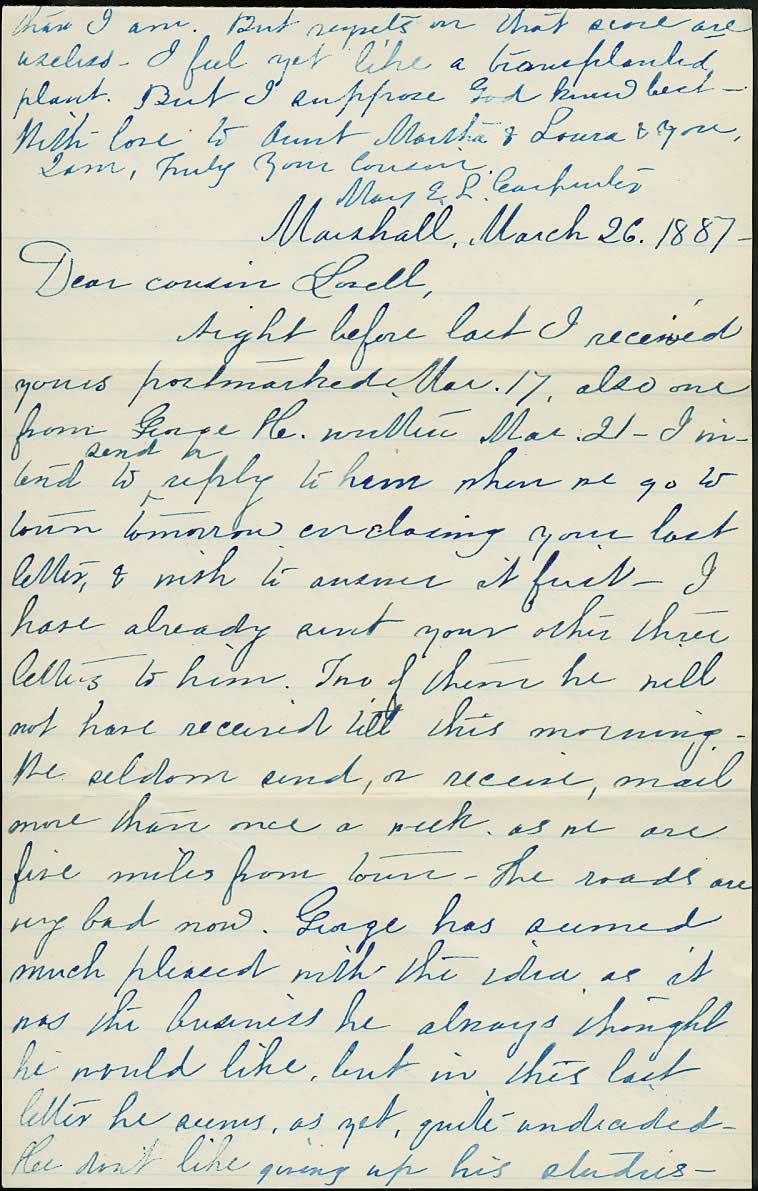 than I am. But regrets on that score are
useless - I feel yet like a transplanted
plant. But I suppose God knew best -
With love to Aunt Martha & Laura & you,
I am, truly your cousin.
Mary E. L. Carpenter
Marshall, March 26. 1887 -
Dear cousin Lovell,
Night before last I received
yours postmarked Mar. 17, also one
from George H. written Mar. 21 - I in-
send a
tend to reply to him when we go to
town tomorrow enclosing your last
letter, & wish to answer it first - I
have already sent your other three
letters to him. Two of them he will
not have received till this morning -
We seldom send, or receive, mail
more than once a week. as we are
five miles from town - The roads are
very bad now. George has seemed
much pleased with the idea as it
was the business he always thought
he would like, but in this last
letter he seems, as yet, quite undecided -
He don't like giving up his studies -